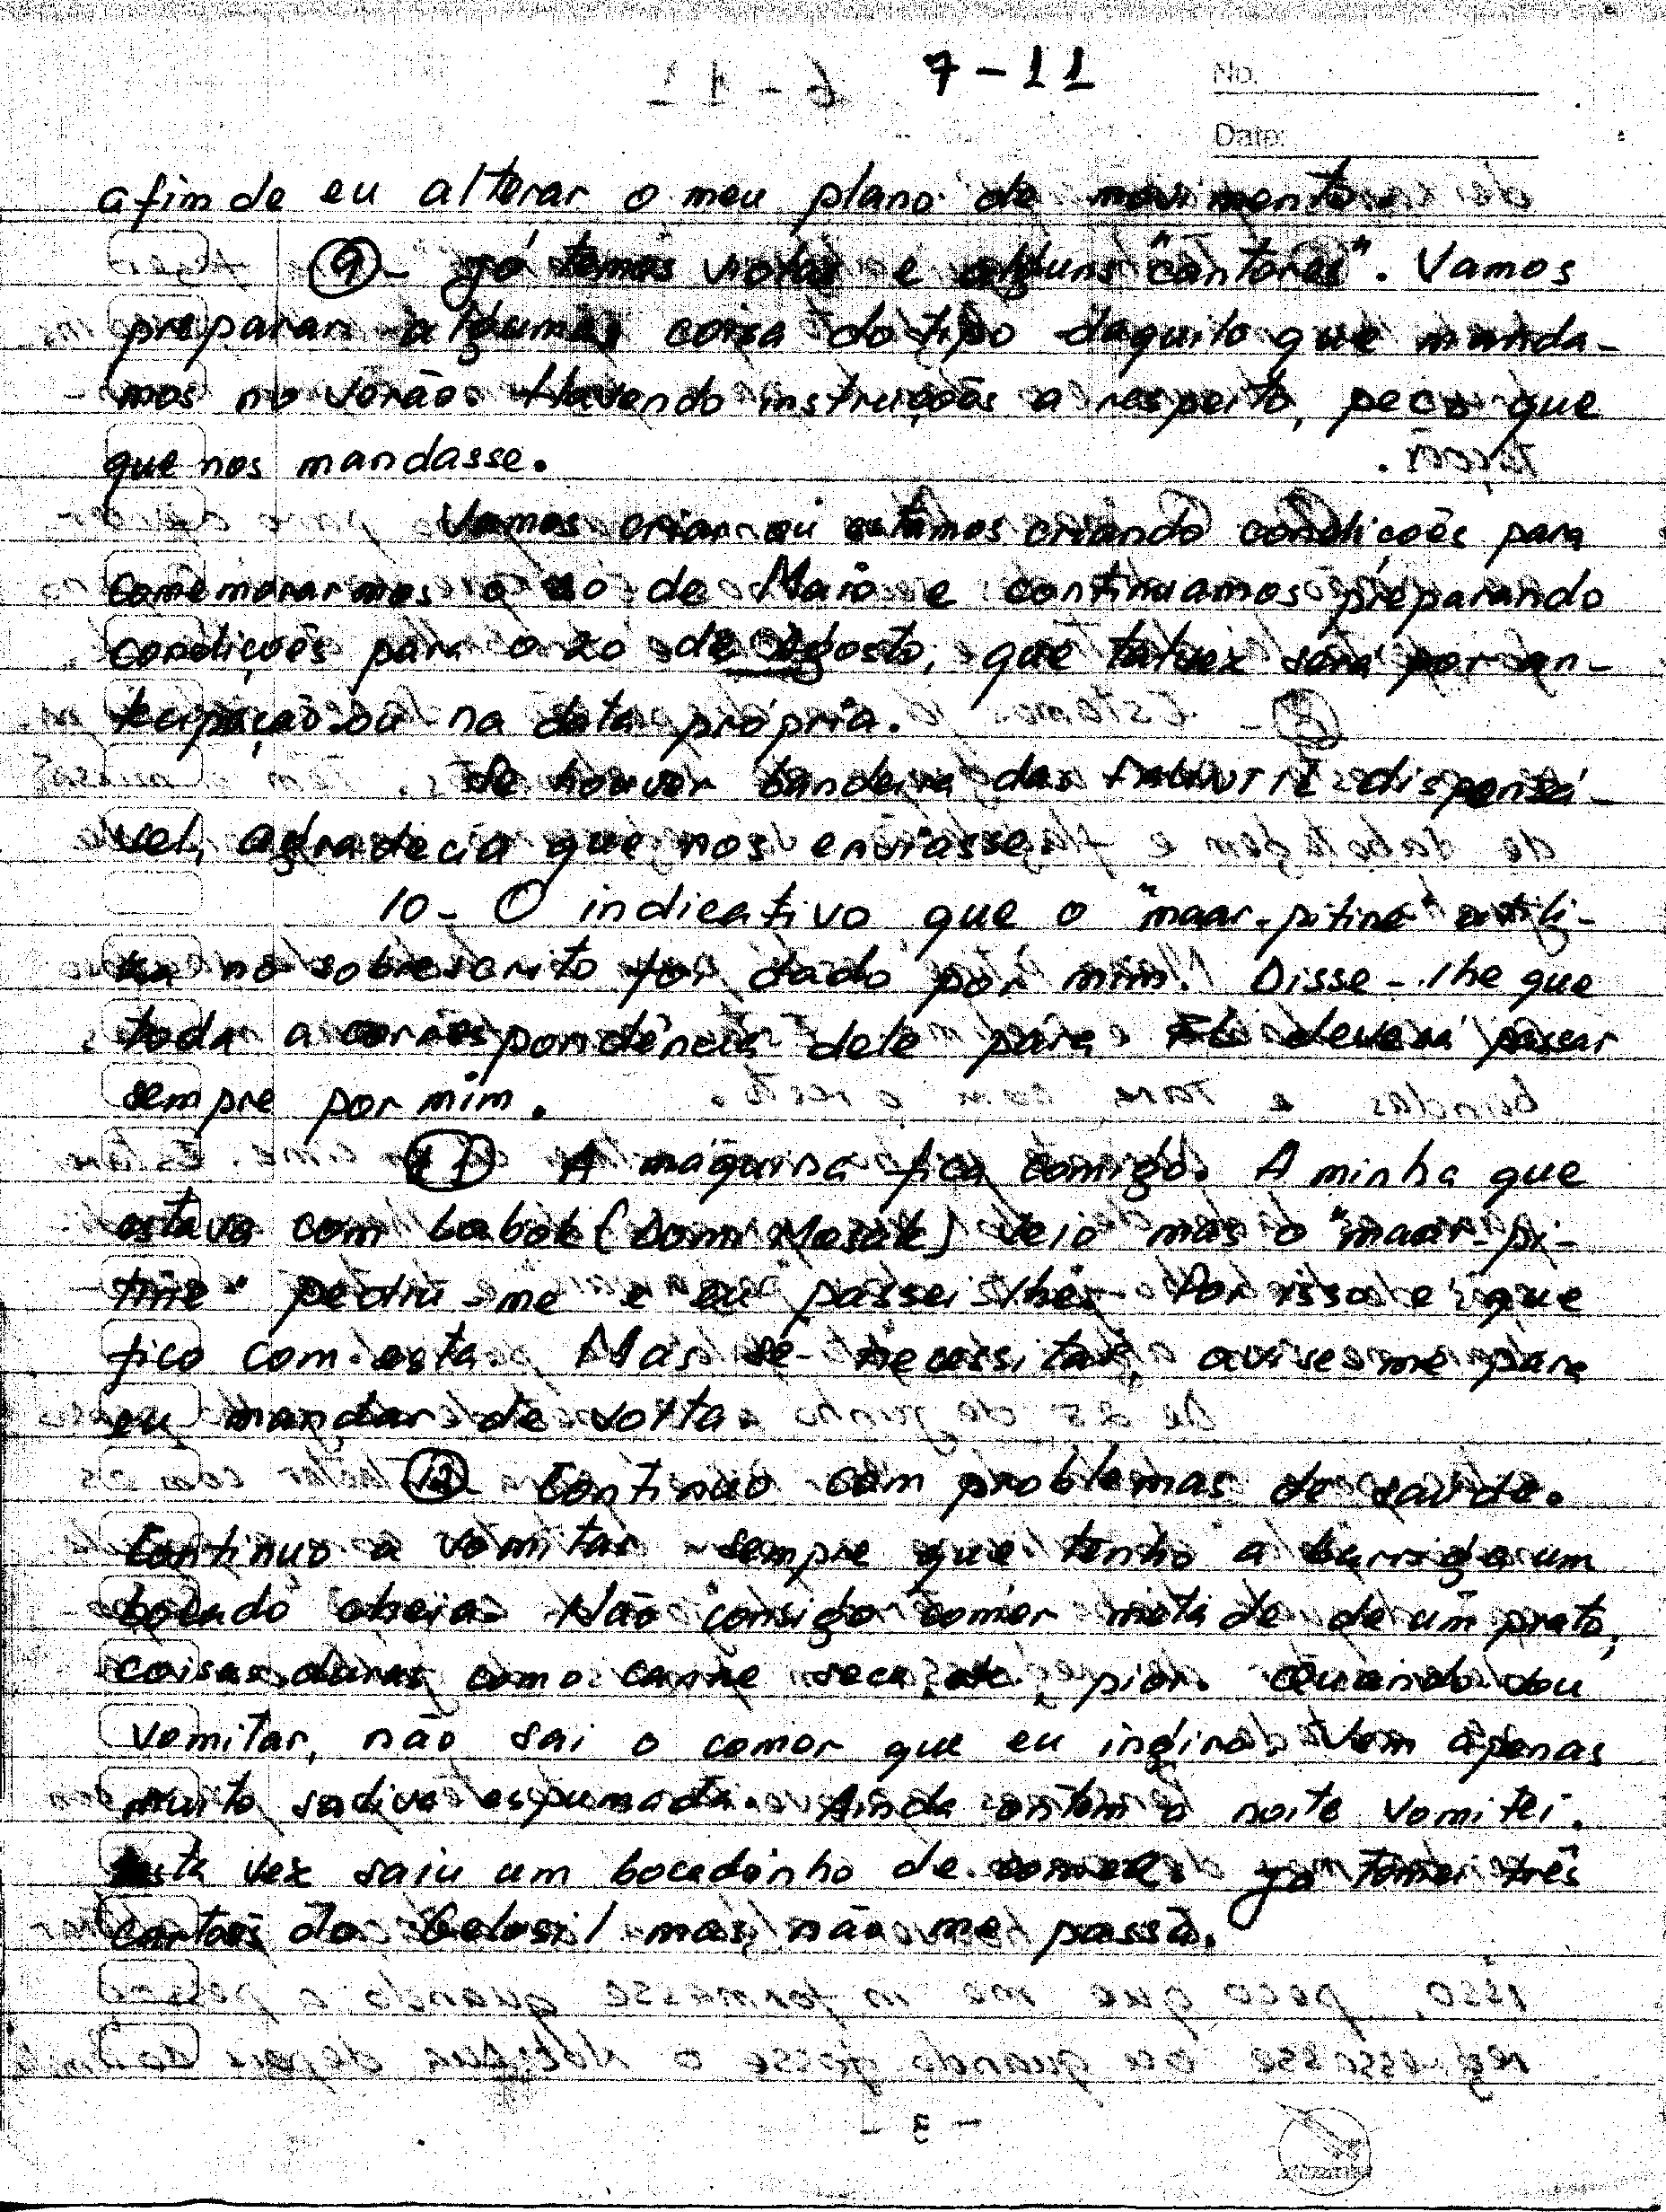 7-11
No.
Date:
afim de eu alterar o meu plano de movimento.
9- Já temos violas e alguns "cantores". Vamos
preparar alguma coisa do tipo daquilo que manda-
mos no verão. Havendo instruções a respeito, peço que
que nos mandasse.
Vamos criar ou estamos criando condições para
comemorarmos o 20 de Maio e continuamos preparando
condições para o 20 de Agosto, que talvez será por an-
tecipação ou na data própria.
Se houver bandeira das FALINTIL dispensá-
vel, agradecia que nos enviasse.
10- O indicativo que o "maar-pitine" utili-
za no sobrescrito foi dado por mim. Disse-lhe que
toda a correspondência dele para deverá passar
sempre por mim.
11 A máquina fica comigo. A minha que
estava com (Domi ) veio mas o "maar-pi-
tine" pediu-me e eu passei-lhe. Por isso é que
fico com esta. Mas se necessitar, avise-me para
eu mandar de volta.
12- Continuo com problemas de saúde.
Continuo a vomitar sempre que tenho a barriga um
bocado cheia. Não consigo comer metade de um prato,
coisas duras como carne seca, etc, pior. Quando vou
vomitar, não sai o comer que eu ingiro. Vem apenas
muito saliva espumada. Ainda ontem à noite vomitei.
Esta vez saiu um bocadinho de comer. Já tomei três
cartões do Gelosil mas não me passa.